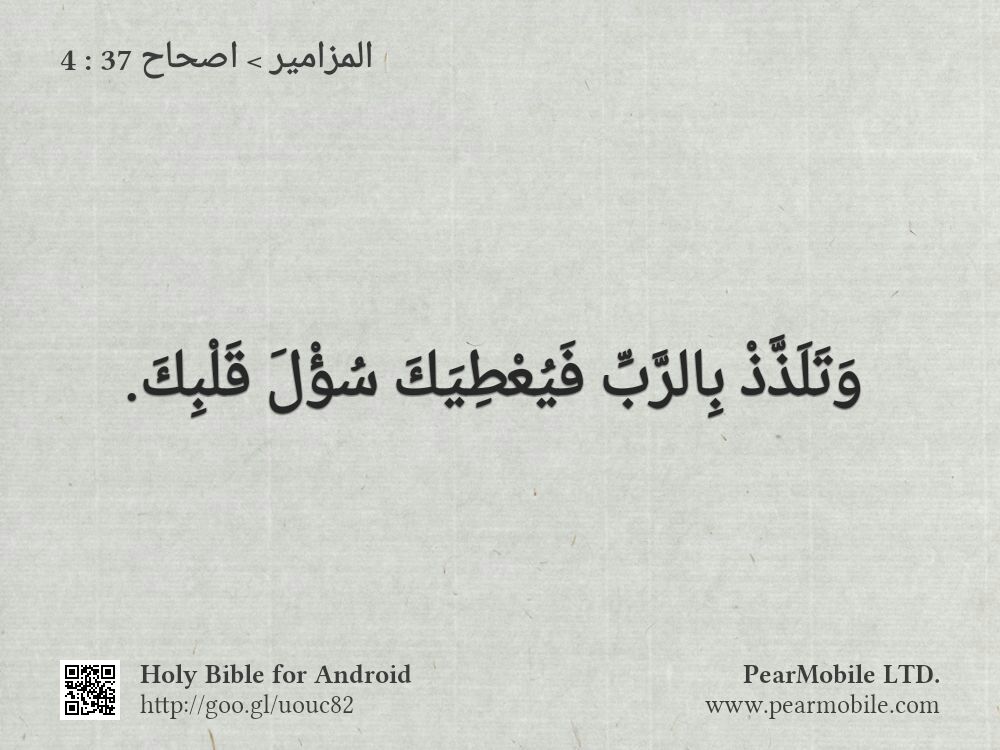 المزامير > اصحاح 37 : 4
وَتَلَذَّذْ بِالرَّبِّ فَيُعْطِيَكَ سُؤْلَ قَلْبِكَ.
Holy Bible for Android
http://goo.gl/uouc82
PearMobile LTD.
www.pearmobile.com